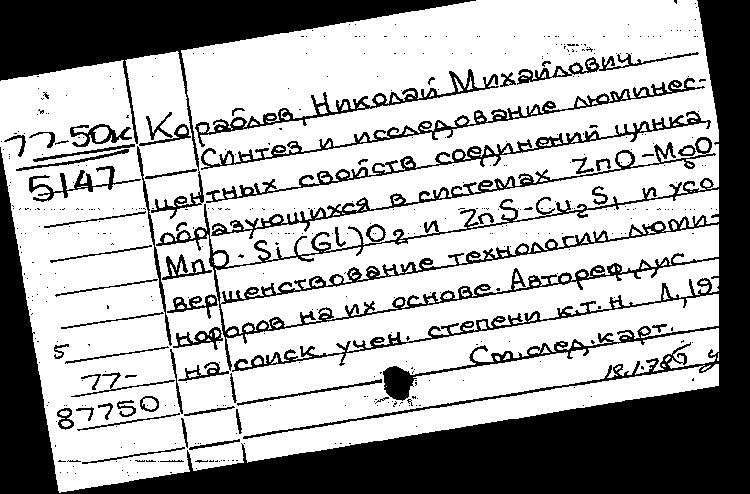 77-50к
5147
Кораблев, Николай Михайлович.
Синтез и исследование люминес-
центных свойств соединений цинка,
образующихся в системах ZnO-MgO-
MnO-Si(Gl)O2 и ZnS-Cu2S, и усо
вершенствование технологии люми-
нофоров на их основе. Автореф. дис.
на соиск. учен. степени к.т.н. Л., 197
См. след. карт.
5
77-
87750
18.1.78